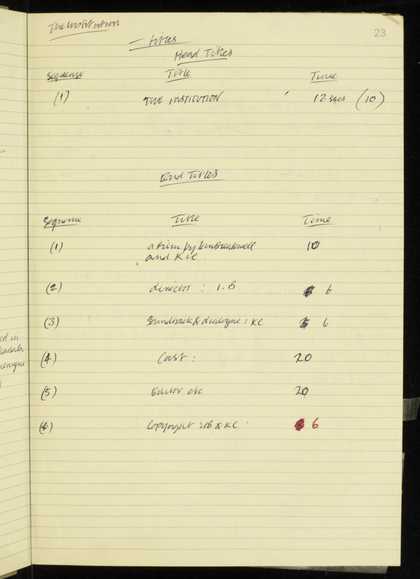 The Institution
23
— titles
Head Titles
Sequence Title Time
(1) THE INSTITUTION 12 secs (10)
End Titles
Sequence Title Time
(1) a film by 10
and K.C
(2) director : I.B 6
(3) Soundtrack & dialogue : KC 6
(4) Cast : 20
(5) Editor etc 20
(6) Copyright IB & KC 6